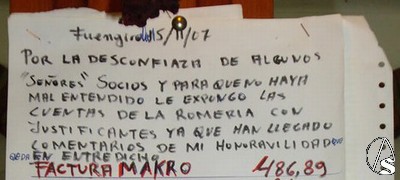 Fuengirola 15/11/07
POR LA DESCONFIAZA DE ALGUNOS
"SEÑORES" SOCIOS Y PARA QUE NO HAYA
MAL ENTENDIDO LE EXPONGO LAS
CUENTAS DE LA ROMERIA CON
JUSTIFICANTES YA QUE HAN LLEGADO
COMENTARIOS DE MI HONORAVILIDAD QUE
QEDA EN ENTREDICHO
FACTURA MAKRO 486,89